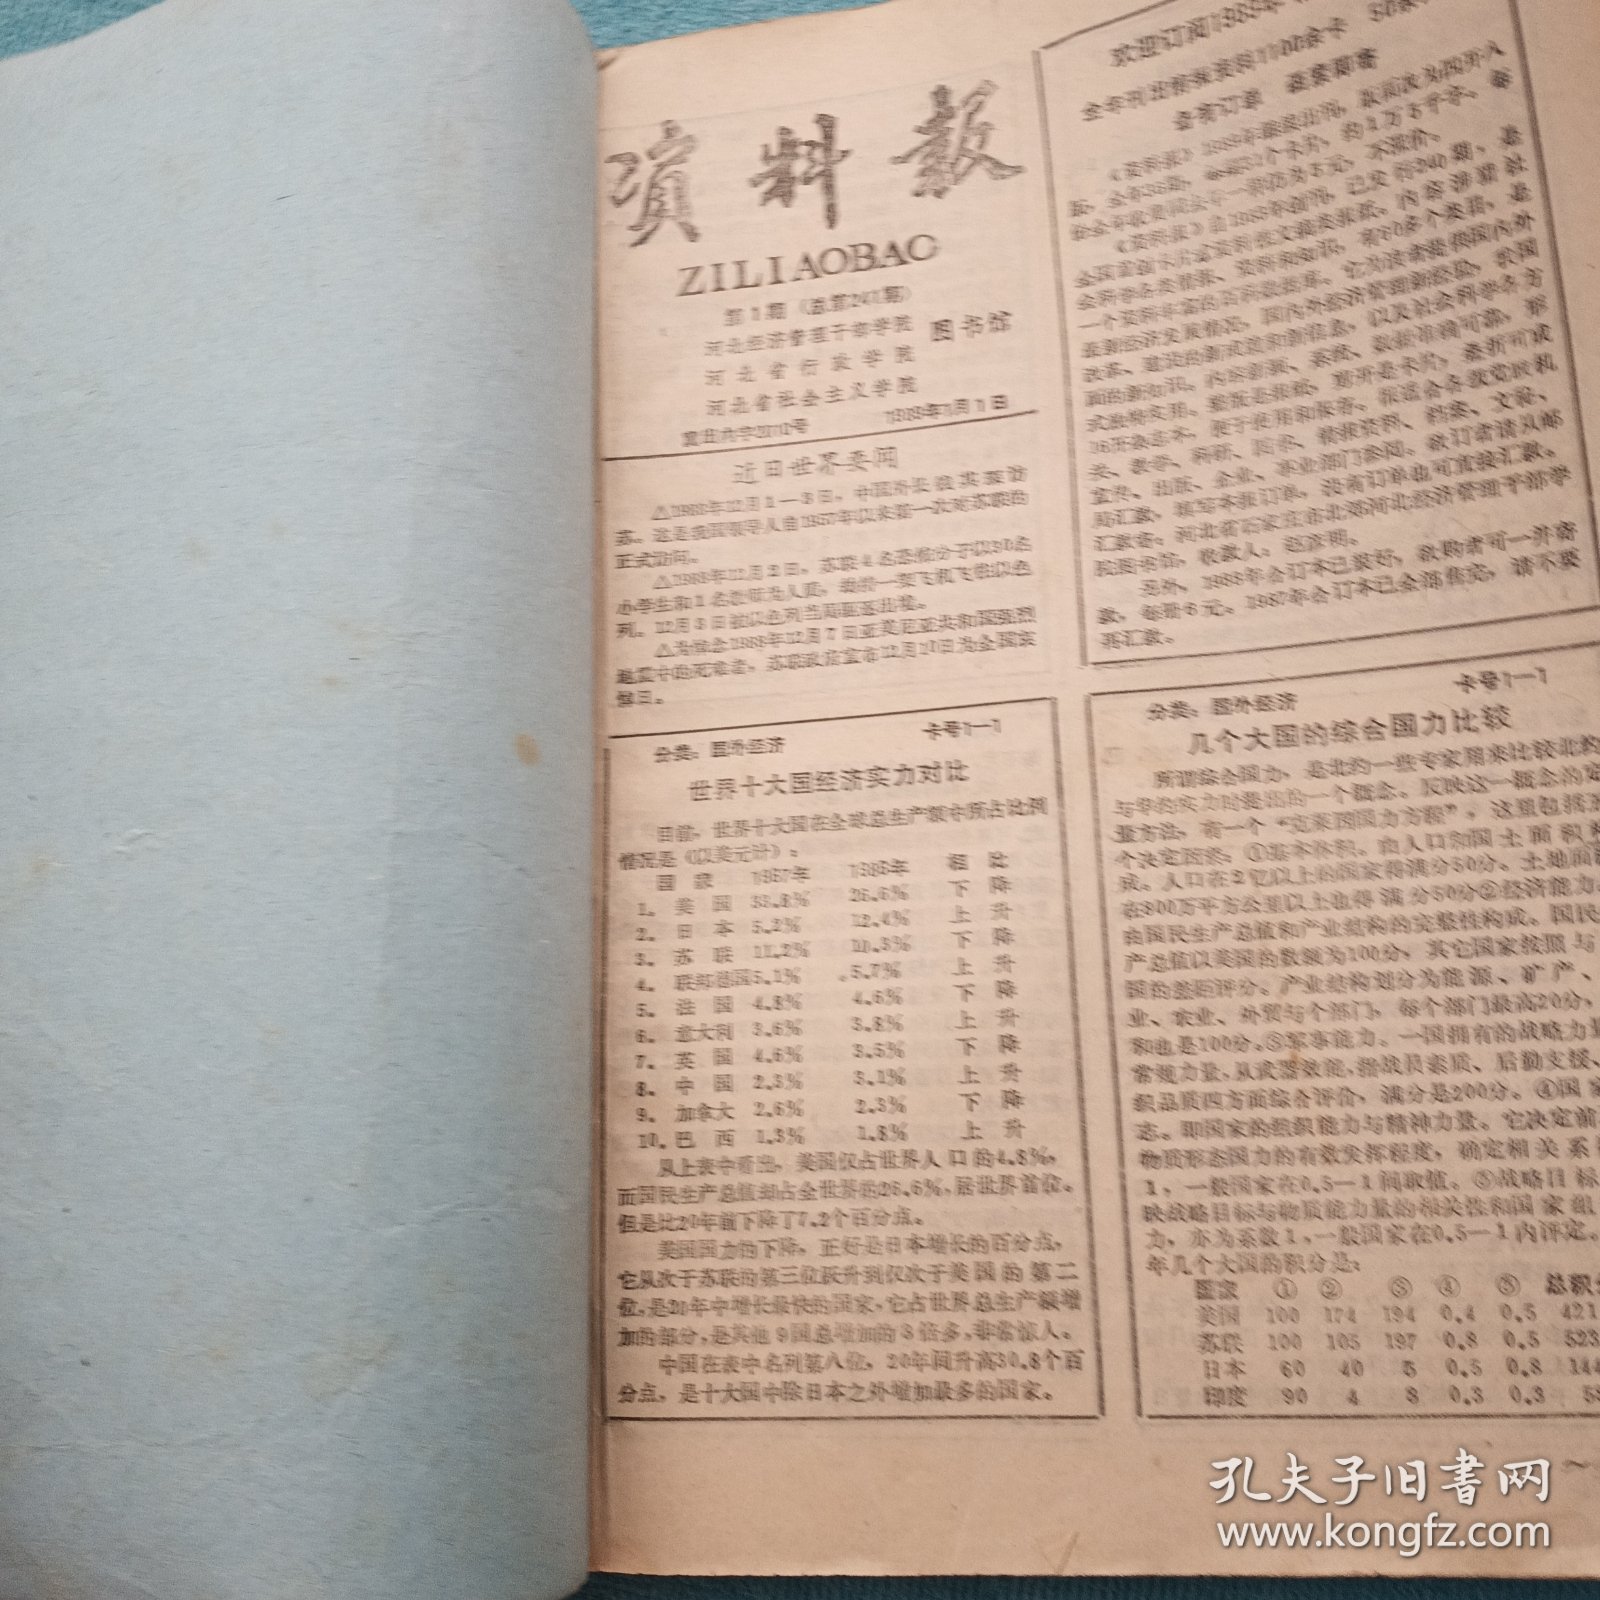 资料报
ZILIAOBAO
第1期（总第241期）
河北经济管理干部学院
河北省行政学院
河北省社会主义学院
图书馆
1989年1月1日
近日世界要闻
△1988年12月1－3日，中国外长钱其琛访
苏。这是我国领导人自1957年以来第一次对苏联的
正式访问。
△1988年12月2日，苏联4名恐怖分子以30名
小学生和1名教师为人质，劫持一架飞机飞往以色
列。12月3日被以色列当局驱逐出境。
△为悼念1988年12月7日亚美尼亚共和国强烈
地震中的死难者，苏联政府宣布12月10日为全国哀
悼日。
分类：国外经济 卡号1－1
世界十大国经济实力对比
目前，世界十大国在全球总生产额中所占比例
情况是（以美元计）：
国家 1967年 1986年 相比
1. 美国 33.8% 26.6% 下降
2. 日本 5.2% 12.4% 上升
3. 苏联 11.2% 10.3% 下降
4. 联邦德国5.1% 5.7% 上升
5. 法国 4.8% 4.6% 下降
6. 意大利 3.6% 3.8% 上升
7. 英国 4.6% 3.5% 下降
8. 中国 2.3% 3.1% 上升
9. 加拿大 2.6% 2.3% 下降
10. 巴西 1.3% 1.8% 上升
从上表中看出，美国仅占世界人口的4.8%，
而国民生产总值却占全世界的26.6%，居世界首位。
但是比20年前下降了7.2个百分点。
美国国力的下降，正好是日本增长的百分点，
它从次于苏联的第三位跃升到仅次于美国的第二
位，是20年中增长最快的国家，它占世界总生产额增
加的部分，是其他9国总增加的3倍多，非常惊人。
中国在表中名列第八位，20年间升高30.8个百
分点，是十大国中除日本之外增加最多的国家。
欢迎订阅1989年
全年刊出情报资料1100余卡
备有订单 函索即寄
《资料报》1989年继续出刊，版面改为四开八
版，全年36期，每期31个卡片，约1万5千字。每
份全年收费同去年一样仍为5元，不涨价。
《资料报》自1985年创刊，已发行240期，是
全国首创卡片式资料性文摘类报纸。内容涉猎社
会科学各类情报、资料和知识，有60多个类目，是
一个资料丰富的百科数据库。它为读者提供国内外
最新经济发展情况，国内外经济管理新经验，我国
改革、建设的新成就和新信息，以及社会科学各方
面的新知识。内容新颖、系统、数据准确可靠，形
式独特实用。整版是报纸，裁开是卡片，叠折可成
16开杂志本，便于使用和保存。报适合各级党政机
关、教学、科研、图书、情报资料、档案、文秘、
宣传、出版、企业、事业部门参阅。欲订者请从邮
局汇款，填写本报订单，没有订单也可直接汇款。
汇款寄：河北省石家庄市北郊河北经济管理干部学
院图书馆，收款人：赵彦明。
另外，1988年合订本已装好，欲购者可一并寄
款，每册6元。1987年合订本已全部售完，请不要
再汇款。
分类：国外经济 卡号1－1
几个大国的综合国力比较
所谓综合国力，是北约一些专家用来比较北约
与华约实力时提出的一个概念。反映这一概念的定
量方法，有一个“克莱因国力方程”，这里包括五
个决定因素：①基本体积。由人口和国土面积构
成。人口在2亿以上的国家得满分50分。土地面积
在800万平方公里以上也得满分50分②经济能力。
由国民生产总值和产业结构的完整性构成。国民生
产总值以美国的数额为100分，其它国家按照与
国的差距评分。产业结构划分为能源、矿产、
业、农业、外贸与个部门，每个部门最高20分，
和也是100分。③军事能力。一国拥有的战略力量
常规力量，从武器效能，指战员素质、后勤支援、
织品质四方面综合评价，满分是200分。④国家
志。即国家的组织能力与精神力量。它决定前
物质形态国力的有效发挥程度，确定相关系
1，一般国家在0.5－1间取值。⑤战略目标
映战略目标与物质能力量的相关性和国家组
力，亦为系数1，一般国家在0.5－1内评定。
年几个大国的积分是：
国家 ① ② ③ ④ ⑤ 总积分
美国 100 174 194 0.4 0.5 421
苏联 100 105 197 0.8 0.5 523
日本 60 40 5 0.5 0.8 144
印度 90 4 8 0.3 0.3
孔夫子旧书网
www.kongfz.com